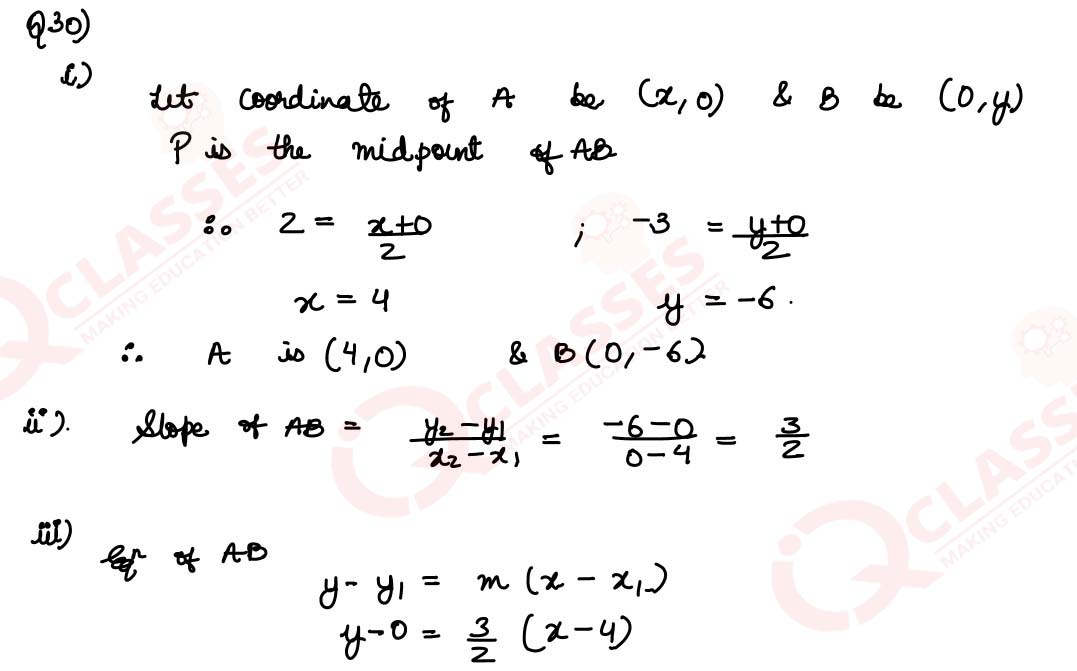 Q30)
i)
Let coordinate of A be (x, 0) & B be (0, y)
P is the midpoint of AB
∴ 2 = (x+0)/2 ; -3 = (y+0)/2
x = 4 y = -6.
∴ A is (4,0) & B (0, -6).
ii). Slope of AB = (y₂ - y₁)/(x₂ - x₁) = (-6-0)/(0-4) = 3/2
iii)
Eqn of AB
y - y₁ = m (x - x₁)
y - 0 = 3/2 (x - 4)
QCLASSES
MAKING EDUCATION BETTER
QCLASSES
MAKING EDUCATION BETTER
QCLASS
MAKING EDUCATI